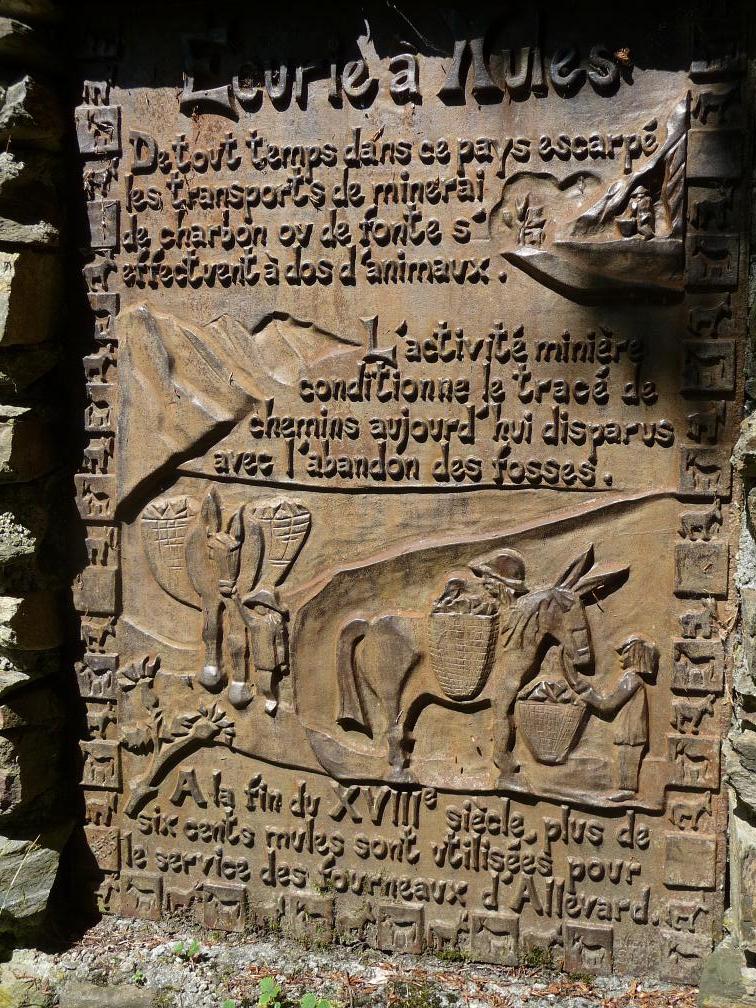 Ecurie à Mules
De tout temps dans ce pays escarpé
les transports de minerai
de charbon ou de fonte s'
effectuent à dos d'animaux.
L'activité minière
conditionne le tracé de
chemins aujourd'hui disparus
avec l'abandon des fosses.
A la fin du XVIIIe siècle, plus de
six cents mules sont utilisées pour
le service des fourneaux d'Allevard.